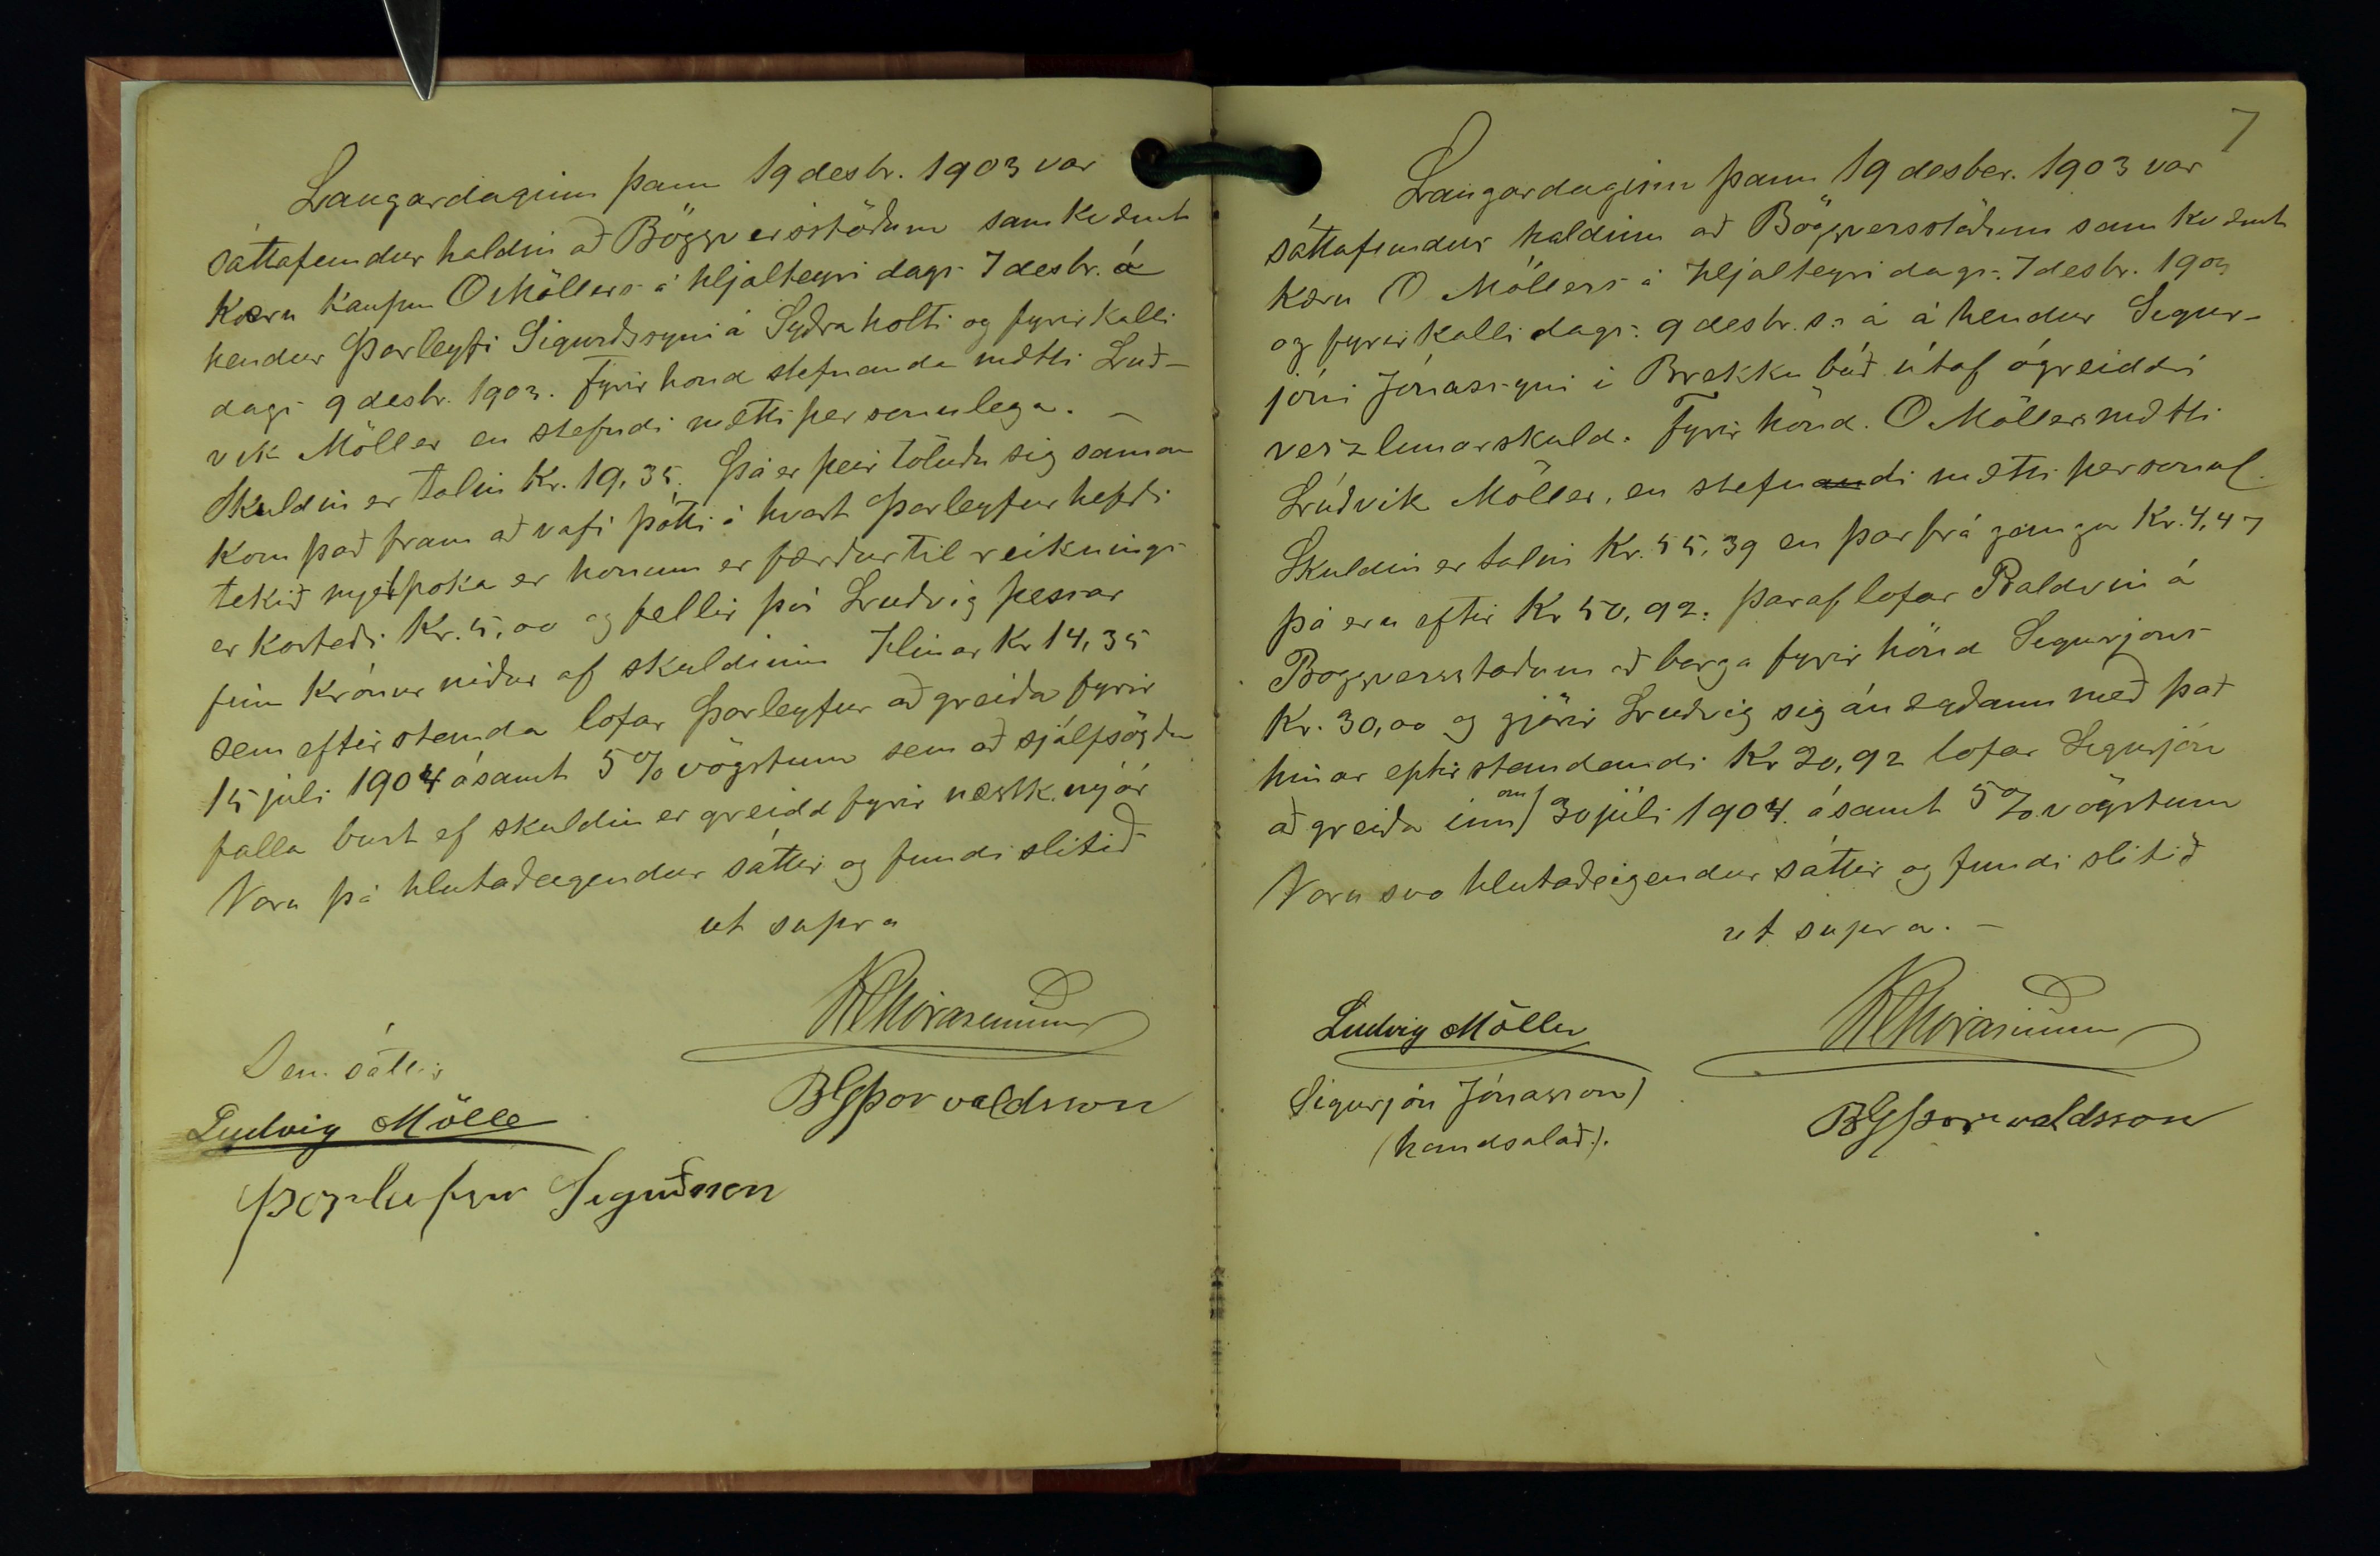 Laugardaginn þann 19 desbr. 1903 var
sáttafundur haldin að Böggversstöðum samkvæmt
Kæru Kaupm O Möllers á Hjalteyri dags 7 desbr. á
hendur Þorleyfi Sigurðssyni á Syðraholti og fyrirkalli
dags 9 desbr. 1903. Fyrir hönd stefnanda mætti Luð-
vik Möller en stefndi mætti personulega. –
Skuldin er talin Kr. 19,35. Þá er þeir töluðu sig saman
Kom það fram að vafi þótti á hvort Þorleyfur hefði
tekið mjelpoka er honum er færður til reiknings
er kostaði Kr. 5,00 og fellir þá Ludvig þessar
fim Krónur niður af skuldinni Hinar Kr 14,35
sem eftirstanda lofar Þorleyfur að greiða fyrir
15 júli 1904 ásamt 5% vögstum sem að sjálfsögðu
falla burt ef skuldin er greidd fyrir næstk. nýár
Voru þá hlutaðeigendur sáttir og fundi slitið
ut supra
Sem sáttir
Ludvig Mölle
BGÞorvaldsson
Þorleifur Sigurðsson
7
Laugardaginn þann 19 desber. 1903 var
sáttafundur haldinn að Böggversstöðum samkvæmt
Kæru O Möllers á Hjalteyri dags: 7 desbr. 1903
og fyrirkalli dags: 9 desbr. s: á á hendur Sigur-
jóni Jónassyni i Brekkubúð útaf ógreiddri
verzlunarskuld. Fyrir hönd. O Möllers mætti
Lúðvik Möller, en stefnandi mætti personul.
Skuldin er talin Kr. 55,39 en þar frá ganga Kr. 4,47
þá eru eftir Kr 50,92. Þaraf lofar Baldvin á
Böggversstöðum að borga fyrir hönd Sigurjons
Kr. 30,00 og gjörir Ludvig sig ánægðann með það
hinar eptirstandandi Kr 20,92 lofar Sigurjón
að greiða innan 30 júli 1904. ásamt 5% vögstum
Voru svo hlutaðeigendur sáttir og fundi slitið
ut supra. –
Ludvig Möller
Sigurjón Jónasson
(handsalað).
BGÞorvaldsson